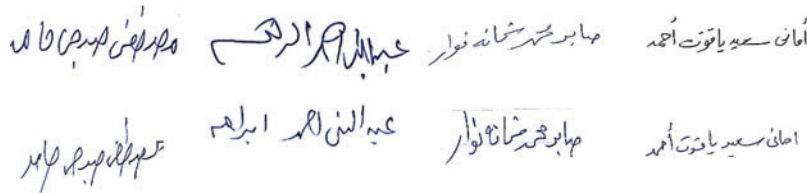 أمانى سعيد ياقوت أحمد صابر محمد شحاته نوار عبد النبى احمد ابراهيم مصطفى صبحى حامد
امانى سعيد ياقوت أحمد صابر محمد شحاته نوار عبد النبى احمد ابراهيم مصطفى صبحى حامد